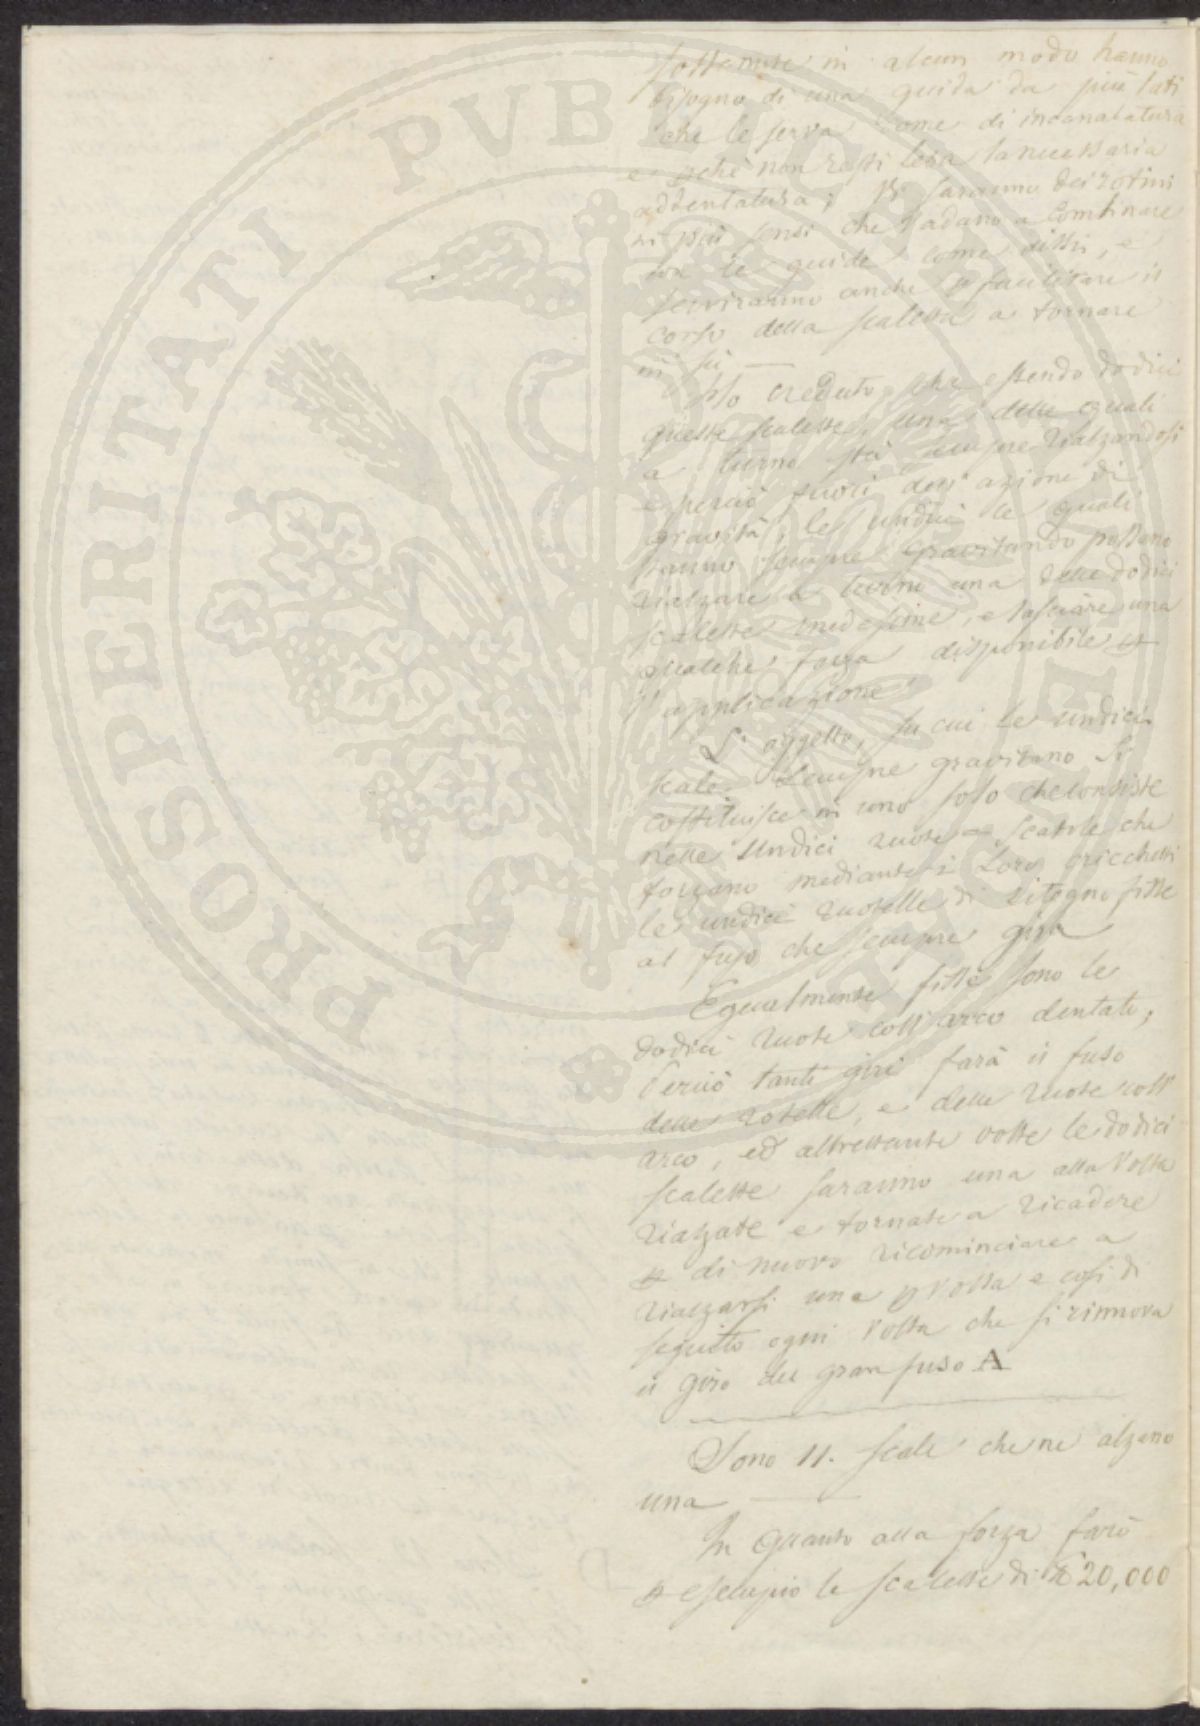 PROSPERITATI PUBLICAE
sostenute in alcun modo hanno
bisogno di una guida da più lati
che le serva come di incanalatura
e perché non resti lesa la necessaria
addentatura; Vi saranno dei rotini
nei sensi che vadano a combinare
con le guide come dissi, e
serviranno anche a facilitare il
corso della scaletta a tornare
in su —
Ho creduto, che essendo dodici
queste scalette, una delle quali
a turno stà sempre rialzandosi
e perciò fuori dell'azione di
gravità, le undici le quali
stanno sempre gravitando possano
rialzare a turno una delle dodici
scalette medesime, e lasciare una
qualche forza disponibile p
l'applicazione
L'oggetto, su cui le undici
scale sempre gravitano si
costituisce in uno solo che consiste
nelle undici ruote = scatole che
forzano mediante i loro cricchetti
le undici ruotelle di ritegno fitte
al fuso che sempre gira
Egualmente fitte sono le
dodici ruote coll'arco dentato,
Perciò tanti giri farà il fuso
delle rotelle, e delle ruote coll'
arco, ed altrettante volte le dodici
scalette saranno una alla volta
rialzate e tornate a ricadere
p di nuovo ricominciare a
rialzarsi una p volta e così di
seguito ogni volta che si rinnova
il giro del gran fuso A
Sono 11. scale che ne alzano
una —
In quanto alla forza farò
p esempio le scalette di 20,000